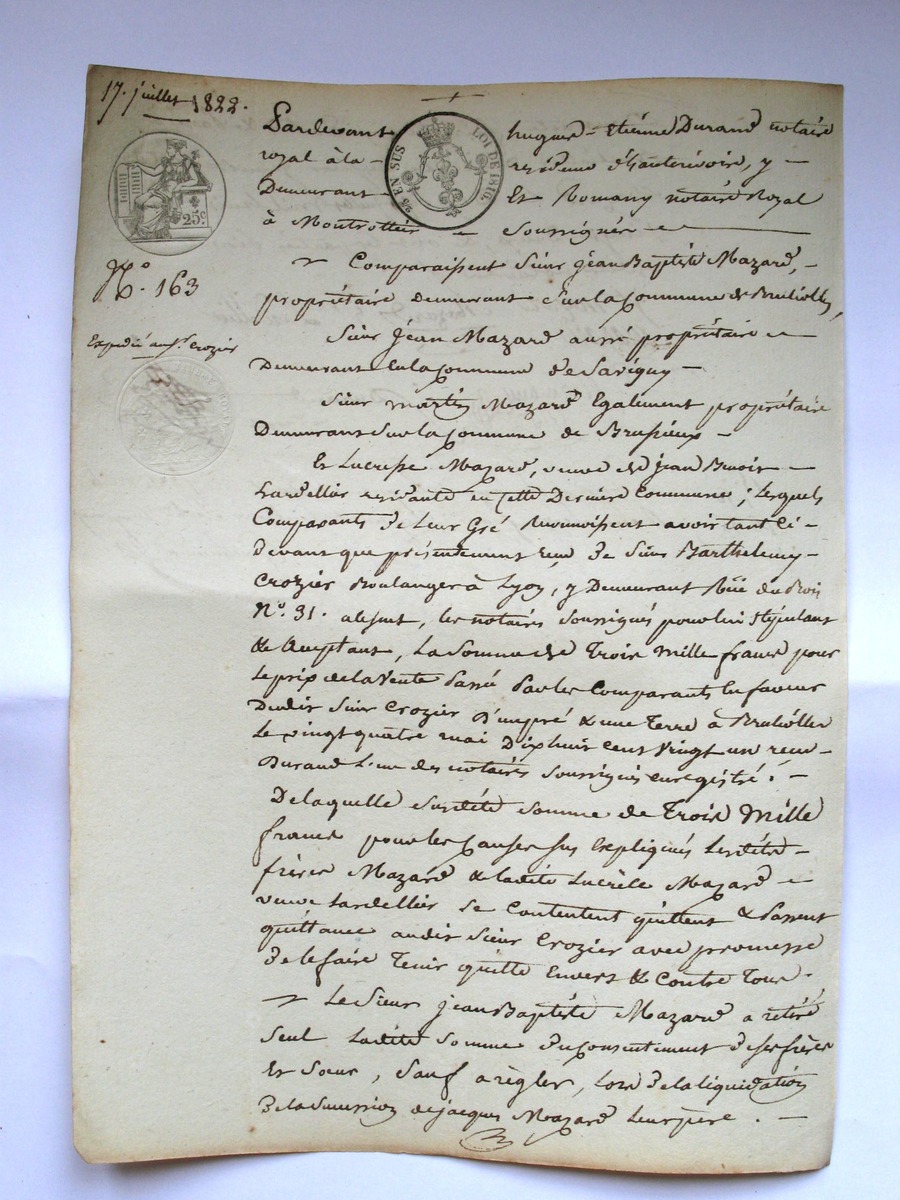 17. juillet 1822.
N.º 163
Expedié au Sr. Crozier
25.c
25 EN SUS LOI DE 1816.
Pardevant hugues-Etiénne Durand notaire
royal à la - résidence d'hauterivoire, y -
Demeurant Et Romany notaire Royal
à Montrottier - Soussignés -
Comparaissent Sieur jean Baptiste Mazard, -
propriétaire Demeurant Sur la Commune de Brullioles,
Sieur Jean Mazard aussi propriétaire -
Demeurant en la Commune de Savigny -
Sieur martin Mazard Egalement propriétaire
Demeurant Sur la Commune de Brussieux -
Et Lucresse Mazard, veuve de jean Benoit -
Lardellier residante en Cette Derniere Commune ; Lesquels
Comparants de Leur Gré Reconnoissent avoir tant Ci-
devant que présentement reçu de Sieur Barthelemy-
Crozier Boulanger à Lyon, y Demeurant Rüe du Bois
N.º 31. absent, les notaires Soussignés pour lui Stipulant
& acceptant, La Somme de Trois mille francs pour
Le prix de la Vente Passé Par les Comparants En faveur
Dudit Sieur Crozier D'un pré & une Terre à Brullioles
Le vingt quatre mai Dix huit cent Vingt un reçu -
Durand L'un des notaires Soussignés enregistré. -
De laquelle Susdite Somme de Trois Mille
francs pour les Causes Sus Expliqués Lesdits -
frères Mazard & ladite Lucrèce Mazard -
veuve Lardellier Se Contentent quittent & Passent
quittance audit Sieur Crozier avec promesse
de le faire Tenir quitte Envers & Contre Tous.
Le Sieur jean Baptiste Mazard a retiré
Seul Ladite Somme du Consentement de Ses frères
Et Sœur, Sauf a règler, Lors de la liquidation
de la Succession de jacques Mazard Leur père. -